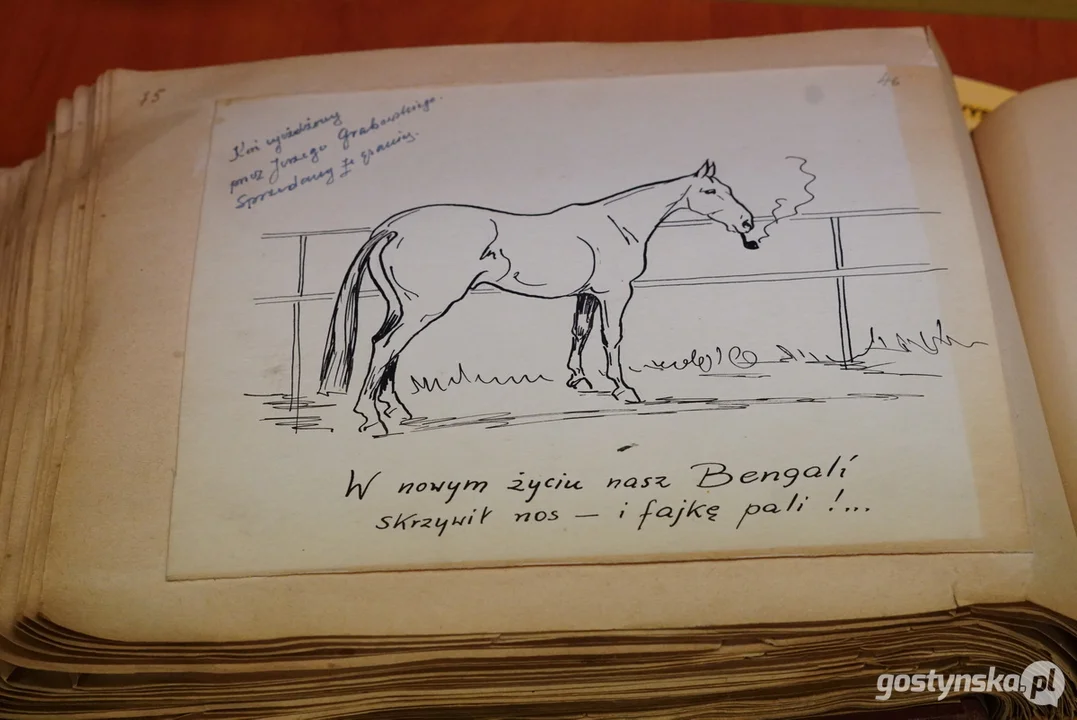 75
46
Koń ujeżdżony
przez Jerzego Grabowskiego.
Sprzedany za granicę.
W nowym życiu nasz Bengali
skrzywił nos – i fajkę pali !...
gostynska.pl